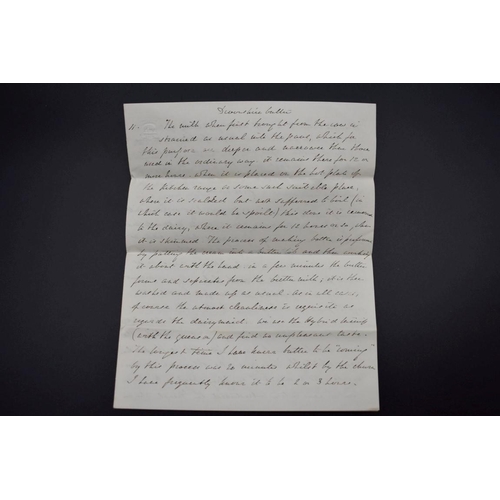 Devonshire butter
The milk when first brought from the cow is
strained as usual into the pans, which for
this purpose are deeper and narrower than those
used in the ordinary way. it remains there for 12 or
more hours, when it is placed on the hot plate of
the kitchen range or some such suitable place,
when it is scalded but not suffered to boil (in
which case it would be spoilt) this done it is
to the dairy, where it remains for 12 hours or so, when
it is skimmed. The process of making butter is performed
by putting the cream into a butter and then
it about with the hand. in a few minutes the butter
forms and separates from the butter milk, it is then
washed and made up as usual. As in all cases,
of course the utmost cleanliness is requisite as
regards the dairymaid. we use the Hybrid
(with the green) and find no unpleasant taste.
The longest time I have known butter to be "coming"
by this process was 20 minutes whilst by the churn
I have frequently known it to be 2 or 3 hours.